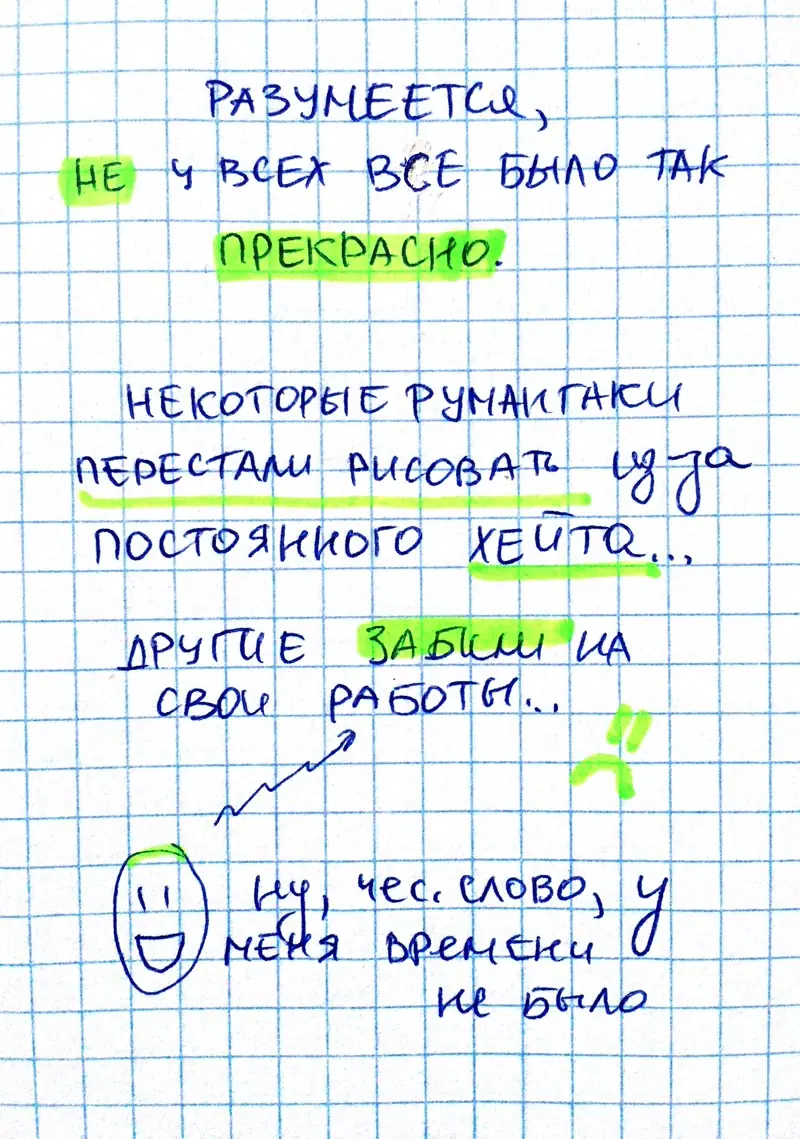 РАЗУМЕЕТСЯ,
НЕ У ВСЕХ ВСЕ БЫЛО ТАК
ПРЕКРАСНО.
НЕКОТОРЫЕ РУМАНГАКИ
ПЕРЕСТАЛИ РИСОВАТЬ из-за
ПОСТОЯННОГО ХЕЙТА...
ДРУГИЕ ЗАБИЛИ НА
СВОИ РАБОТЫ...
ну, чес. слово, у
меня времени
не было